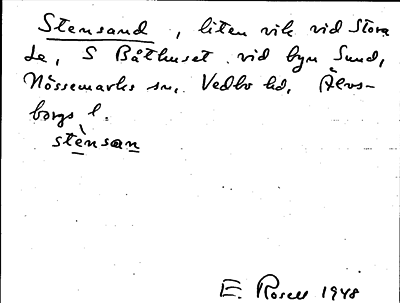 Stensand, liten vik vid Stora
Le, S Båthuset vid byn Sund,
Nössemarks sn, Vedbo hd, Älvs-
borgs l.
stènsan
E. Rosell 1948